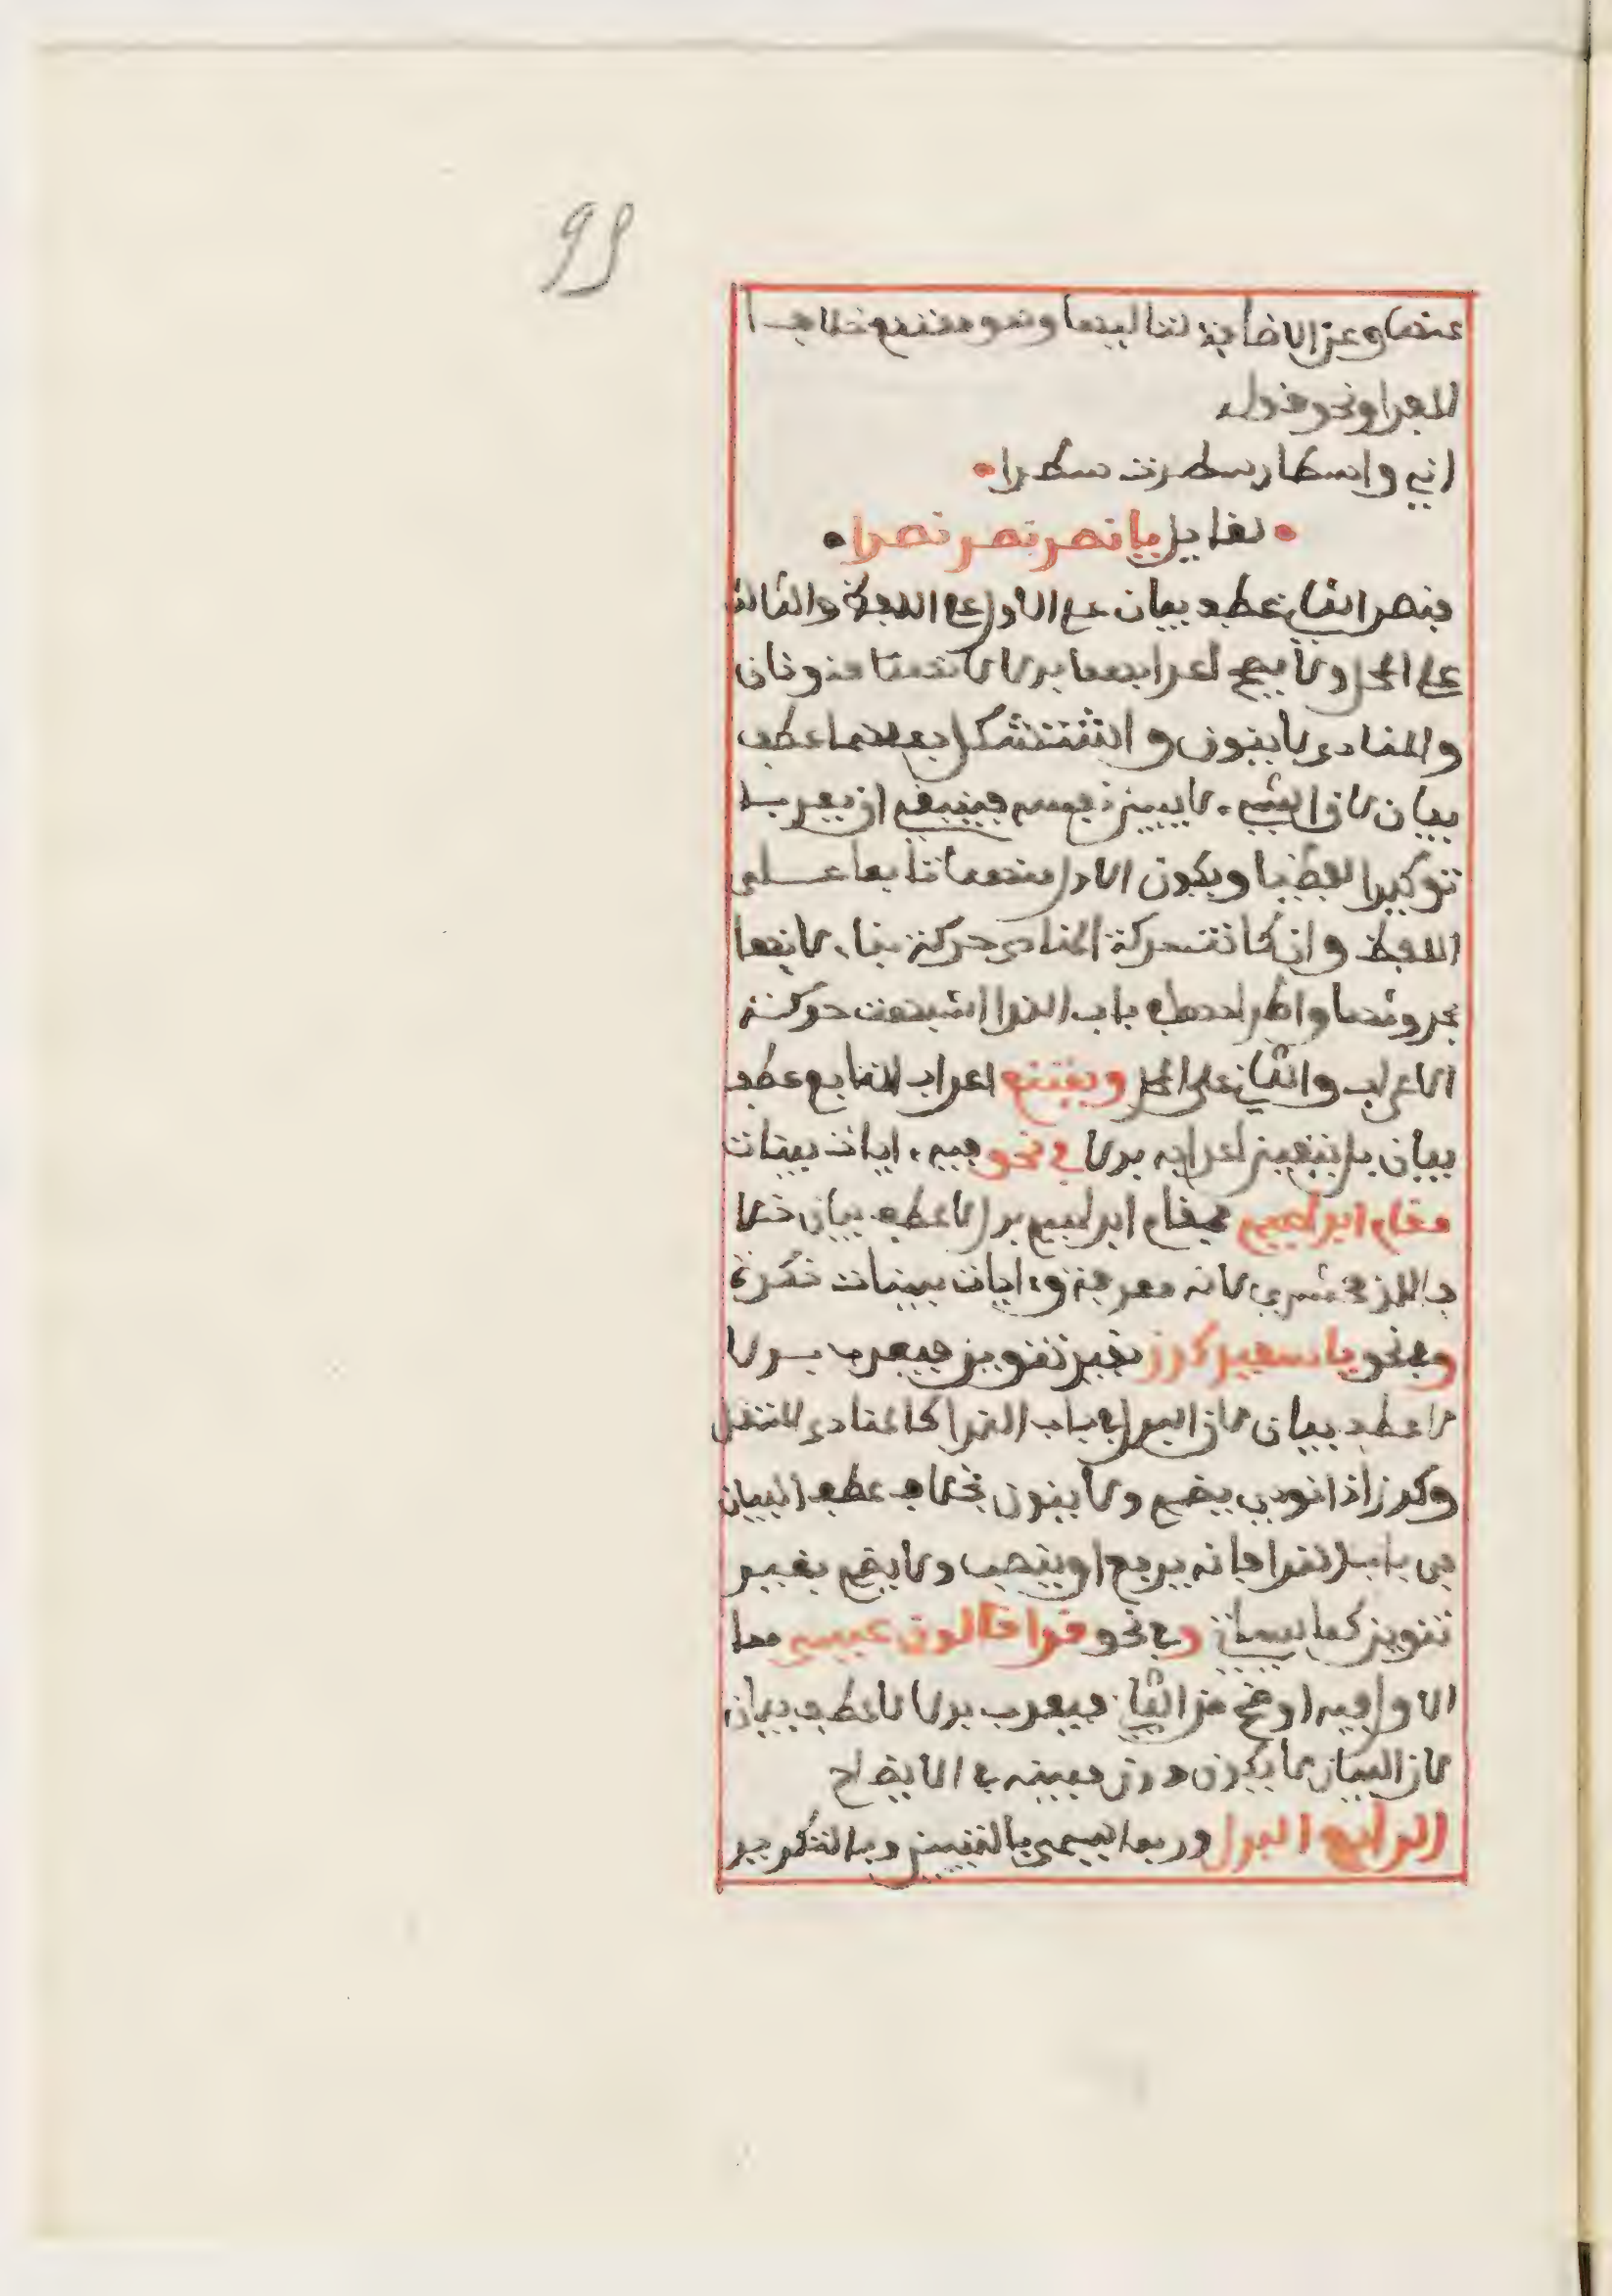 99
عنها وعن الاضافة لتاليها وهو ممتنع خلافا
للفرا ونحو قول
اني واسطار سطرن سطرا
لقايل يا نصر نصر نصرا
فنصر الثاني عطف بيان على الاول على اللفظ والثالث
على المحل ولا يصح اعرابهما بدلا لانهما منونان
والمنادى لا ينون واستشكل بعضهم عطف
بيان لان الشيء لا يبين نفسه فينبغي ان يعرب
توكيدا لفظيا ويكون الاول منهما تابعا على
اللفظ وان كانت حركة المنادى حركة بناء لانها
بحدوثها واطرادها في باب الندا اشبهت حركة
الاعراب والثاني على المحل ويمتنع اعراب التابع عطف
بيان بل يتعين اعرابه بدلا في نحو فيه ءايات بينات
مقام ابراهيم فمقام ابراهيم بدل لا عطف بيان خلا
فا للزمخشري لانه معرفة وءايات بينات نكرة
وفي نحو يا سعيد كرز بغير تنوين فيعرب بدلا
لا عطف بيان لان البدل في باب الندا كالمنادى المستقل
وكرز اذا نودي يضم ولا ينون بخلاف عطف البيان
في باب الندا فانه يرفع او ينصب ولا يضم بغير
تنوين كما سياتي وفي نحو قرا قالون عيسى مما
الاول فيه اوضح من الثاني فيعرب بدلا لا عطف بيان
لان البيان لا يكون دون مبينه في الايضاح
الرابع البدل وربما يسمى بالتبيين وبالتكرير